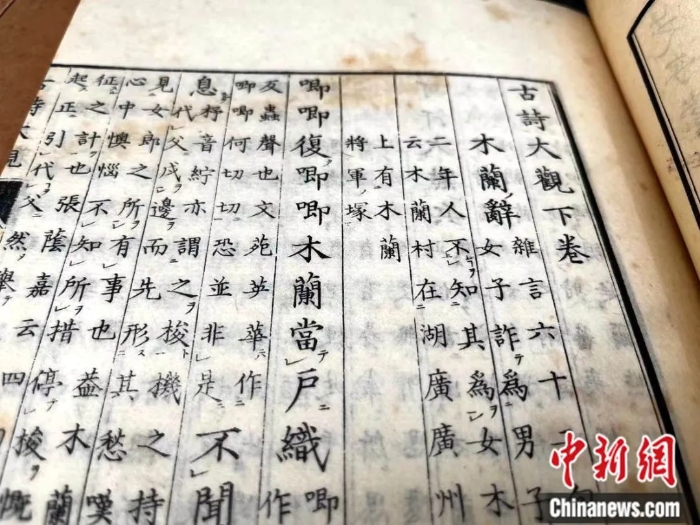 古詩大觀下卷
木蘭辭
雜言六十
女子詐為男子
二年人不知其為女木
云木蘭村在湖廣廣州
上有木蘭
將軍塚
唧唧復唧唧木蘭當戶織
唧
作
及蟲聲也文苑英華作
唧唧何切切恐並非是
不聞
息
抒音紵亦謂之梭機之持
代父戍邊而先形其愁嘆
見女郎之所有事也葢木蘭
心中懊惱不知所措停梭慨
征之計也張蔭嘉云四
起正引代父然
中新网
Chinanews.com